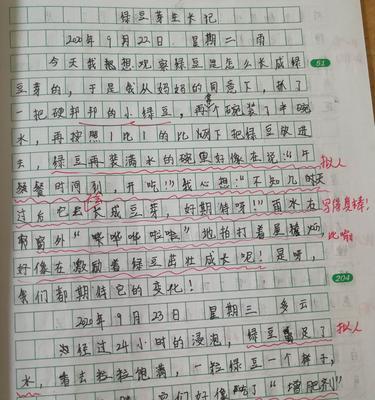 绿豆芽生长记
2020年9月22日 星期二 雨
今天我想想观察绿豆是怎么长成绿
豆芽的,于是我从妈妈的同意下,抓了
一把硬邦邦的小绿豆,再拿个碗装了半碗
水,再按照1比1的比例下把绿豆放进
去,绿豆再装满水的碗里好像在说:“午
餐时间到,开吃!”我心想:“不知几时天
过后它会长成豆芽,好期待呀!”雨水在
窗外“哗哗哗啦啦”地拍打着屋檐,
好像在激励着绿豆茁壮成长呢!是呀,
我们都期待它的变化!
2020年9月23日 星期三 多云
经过24小时的浸泡,绿豆吸足了
水,看去粒粒饱满,一粒绿豆一个样子,
它们好像吃了“增肥剂”
51
拟人
写得真棒!
比喻
204
拟人